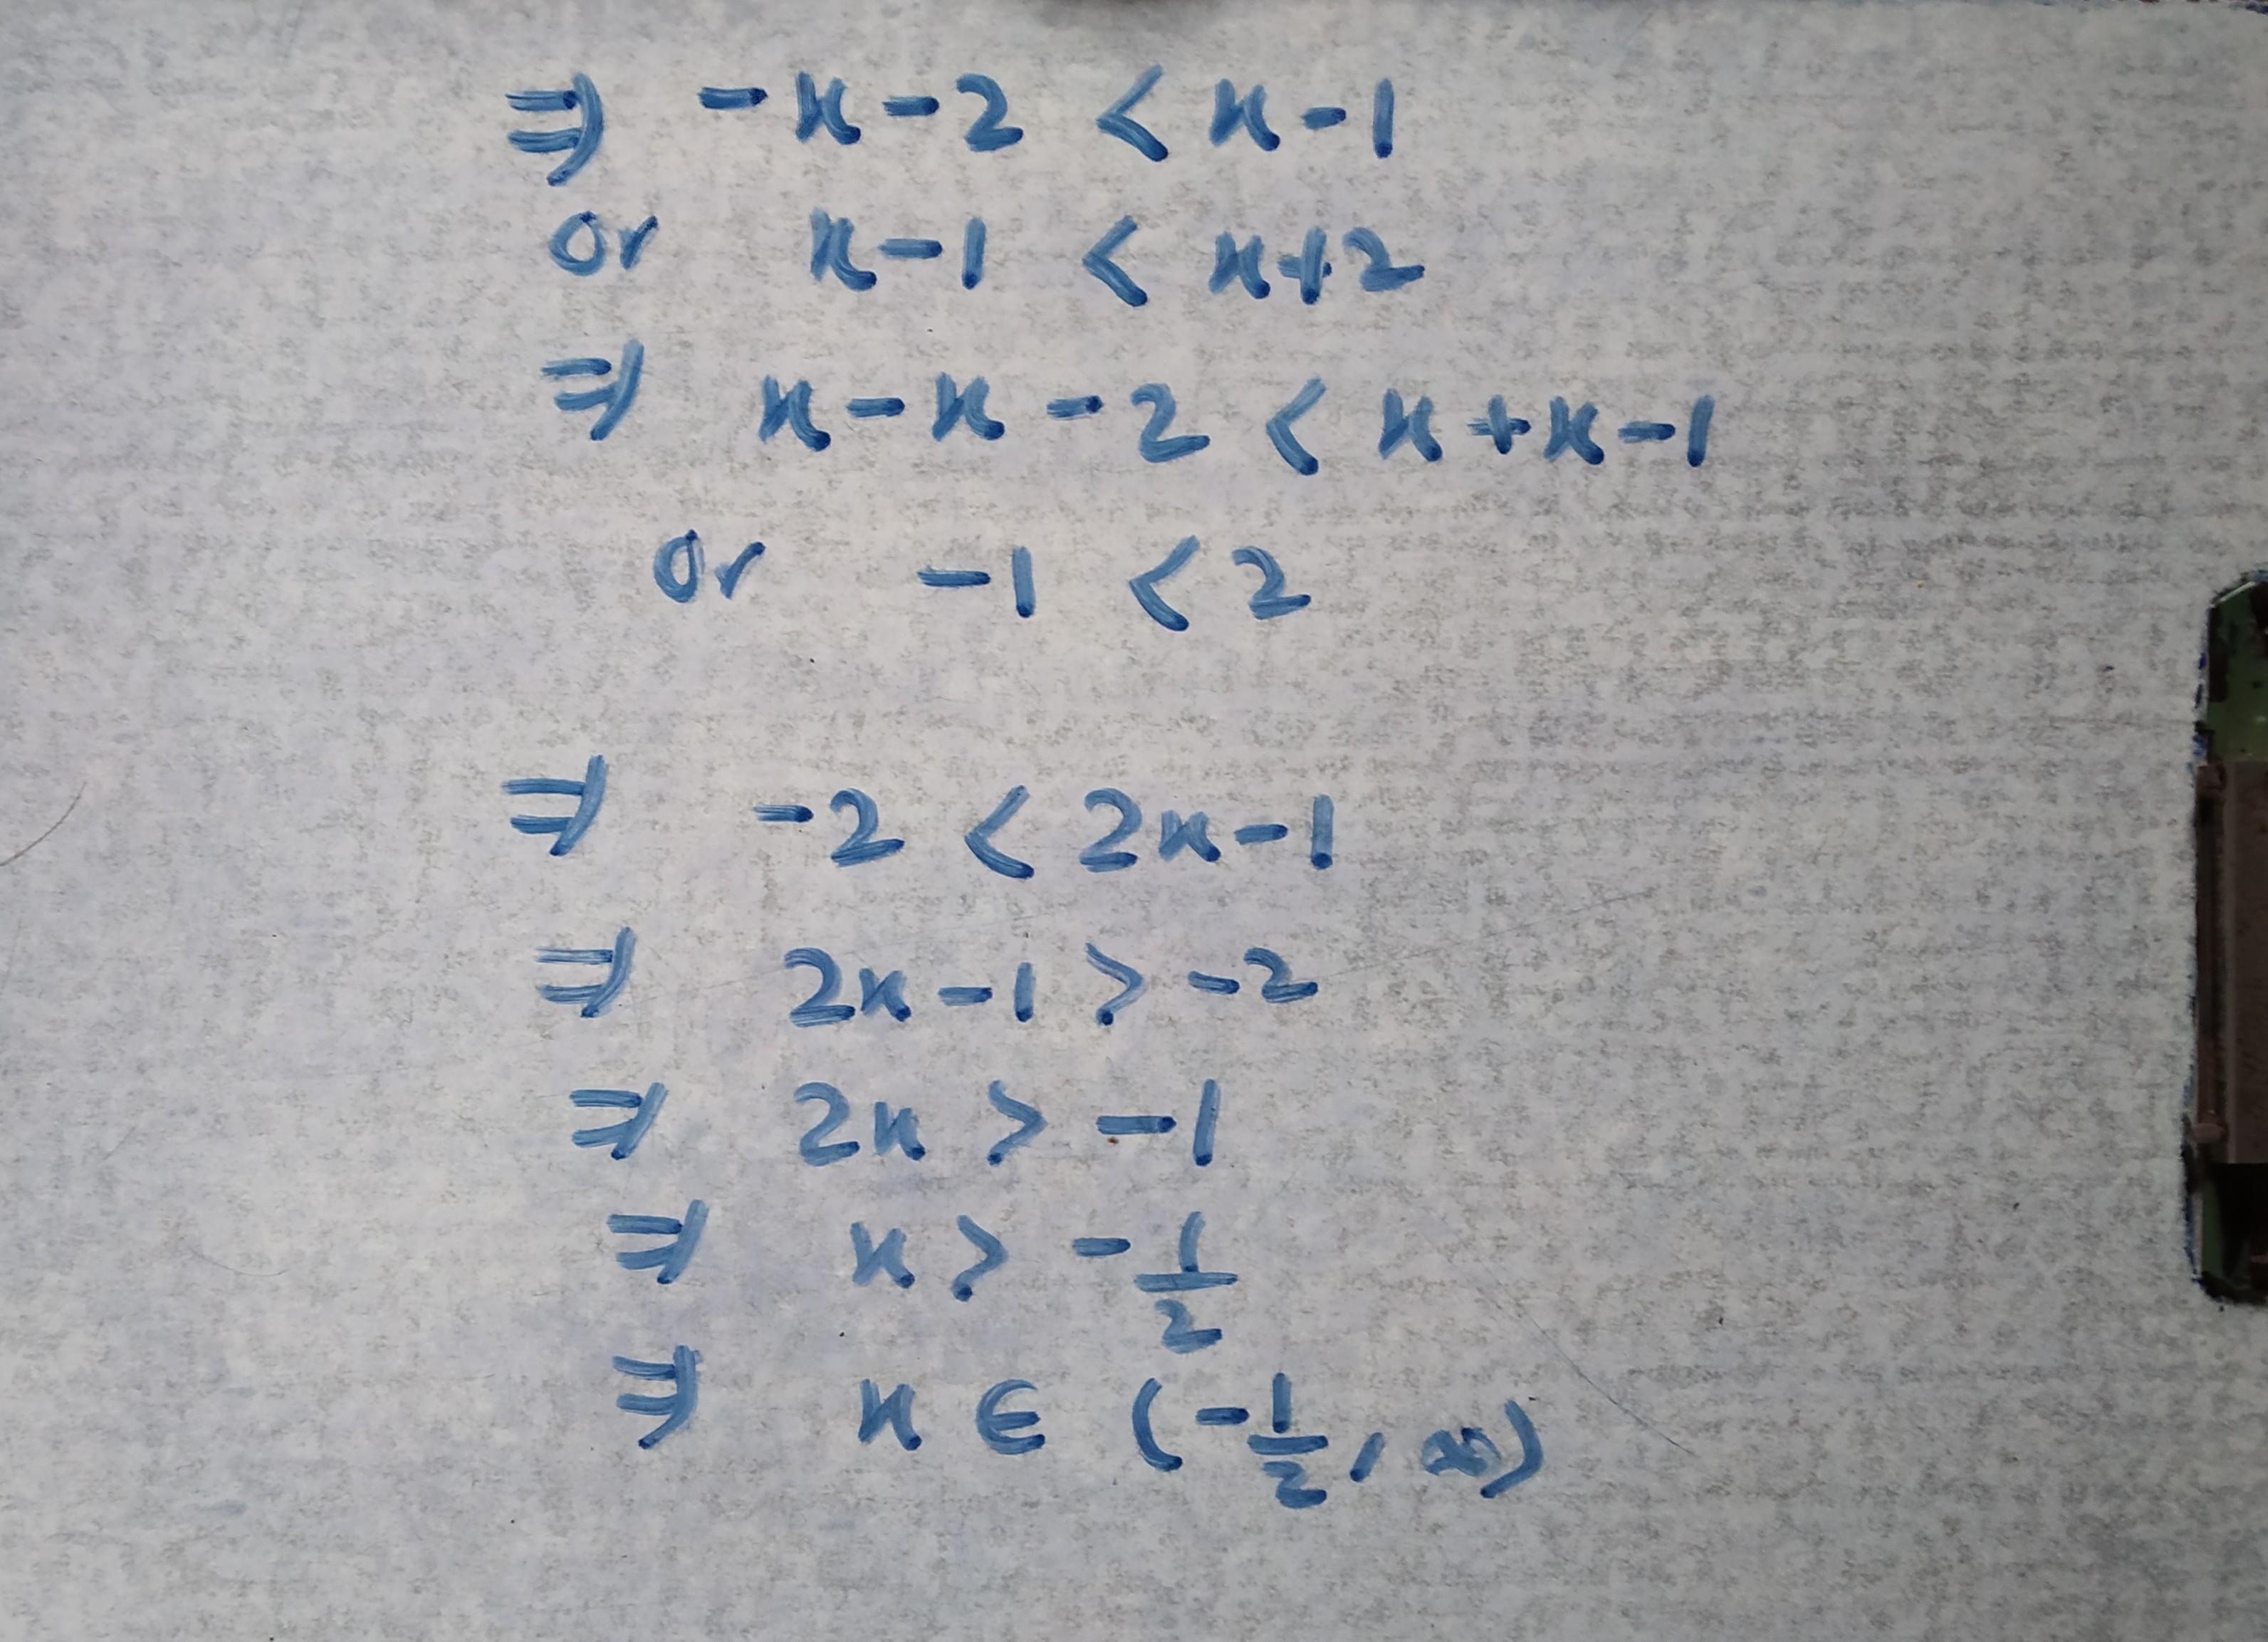 ⇒ -x-2 < x-1
or x-1 < x+2
⇒ x-x-2 < x+x-1
or -1 < 2
⇒ -2 < 2x-1
⇒ 2x-1 > -2
⇒ 2x > -1
⇒ x > -1/2
⇒ x ∈ (-1/2, ∞)